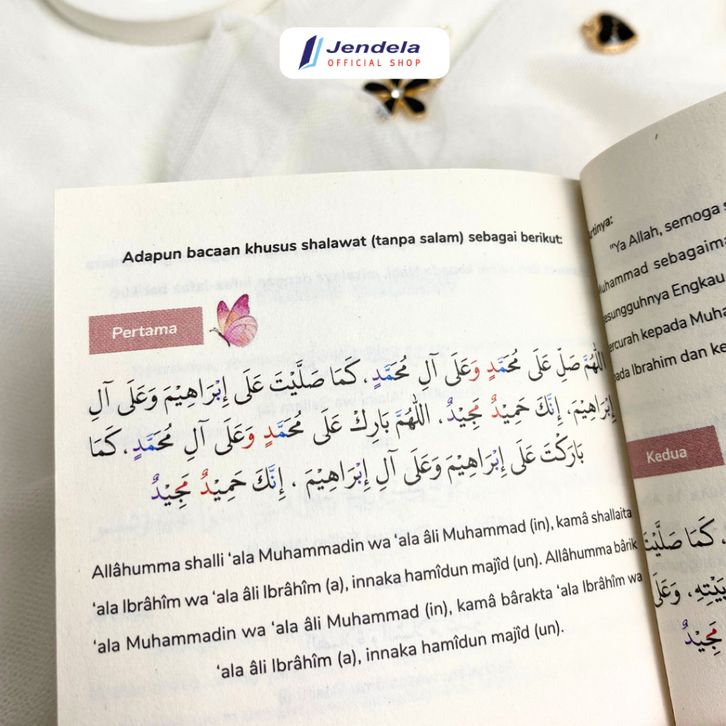 Jendela
OFFICIAL SHOP
Adapun bacaan khusus shalawat (tanpa salam) sebagai berikut:
Pertama
اللّٰهُمَّ صَلِّ عَلَى مُحَمَّدٍ وَعَلَى آلِ مُحَمَّدٍ، كَمَا صَلَّيْتَ عَلَى إِبْرَاهِيْمَ وَعَلَى آلِ
إِبْرَاهِيْمَ، إِنَّكَ حَمِيْدٌ مَجِيْدٌ، اللّٰهُمَّ بَارِكْ عَلَى مُحَمَّدٍ وَعَلَى آلِ مُحَمَّدٍ، كَمَا
بَارَكْتَ عَلَى إِبْرَاهِيْمَ وَعَلَى آلِ إِبْرَاهِيْمَ، إِنَّكَ حَمِيْدٌ مَجِيْدٌ
Allâhumma shalli ‘ala Muhammadin wa ‘ala âli Muhammad (in), kamâ shallaita
‘ala Ibrâhîm wa ‘ala âli Ibrâhîm (a), innaka hamîdun majîd (un). Allâhumma bârik
‘ala Muhammadin wa ‘ala âli Muhammad (in), kamâ bârakta ‘ala Ibrâhîm wa
‘ala âli Ibrâhîm (a), innaka hamîdun majîd (un).
"Ya Allah, semoga
sebagaima
Engkau
kepada Muha
Ibrahim dan ke
Kedua
كَمَا صَلَّيْتَ
وَعَلَى
مَجِيْدٌ